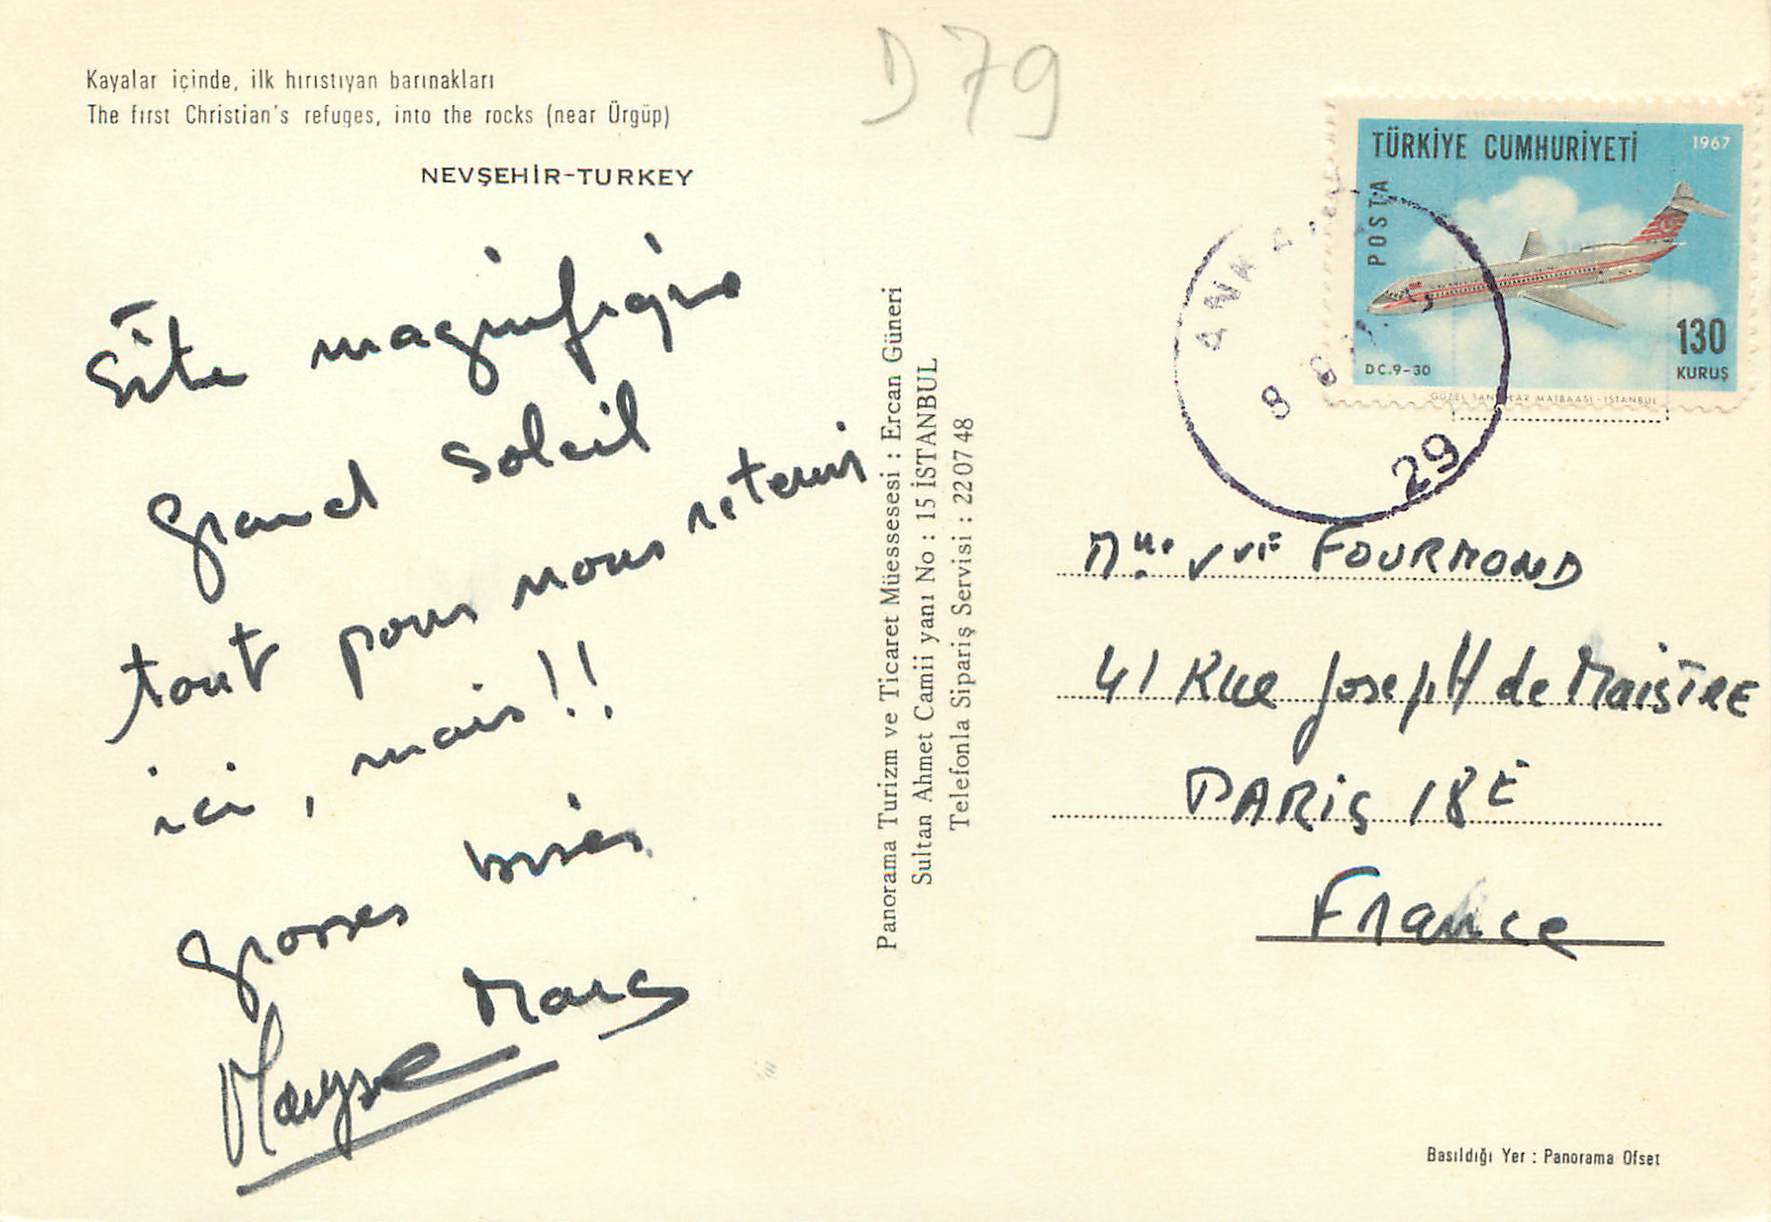 D 79
Kayalar içinde, ilk hırıstıyan barınakları
The first Christian's refuges, into the rocks (near Ürgüp)
NEVŞEHİR-TURKEY
Site magnifique
grand soleil
tout pour nous retenir
ici, mais!!
grosses bises
Marc
Maryse
Panorama Turizm ve Ticaret Müessesesi : Ercan Güneri
Sultan Ahmet Camii yanı No : 15 İSTANBUL
Telefonla Sipariş Servisi : 22 07 48
TÜRKİYE CUMHURİYETİ
1967
POSTA
130
KURUŞ
DC.9-30
GÜZEL SANATLAR MATBAASI - İSTANBUL
ANKA
8 8
29
Mlle FOURMOND
41 Rue JosepH de MaisTRE
PARiS 18E
France
Basıldığı Yer : Panorama Ofset